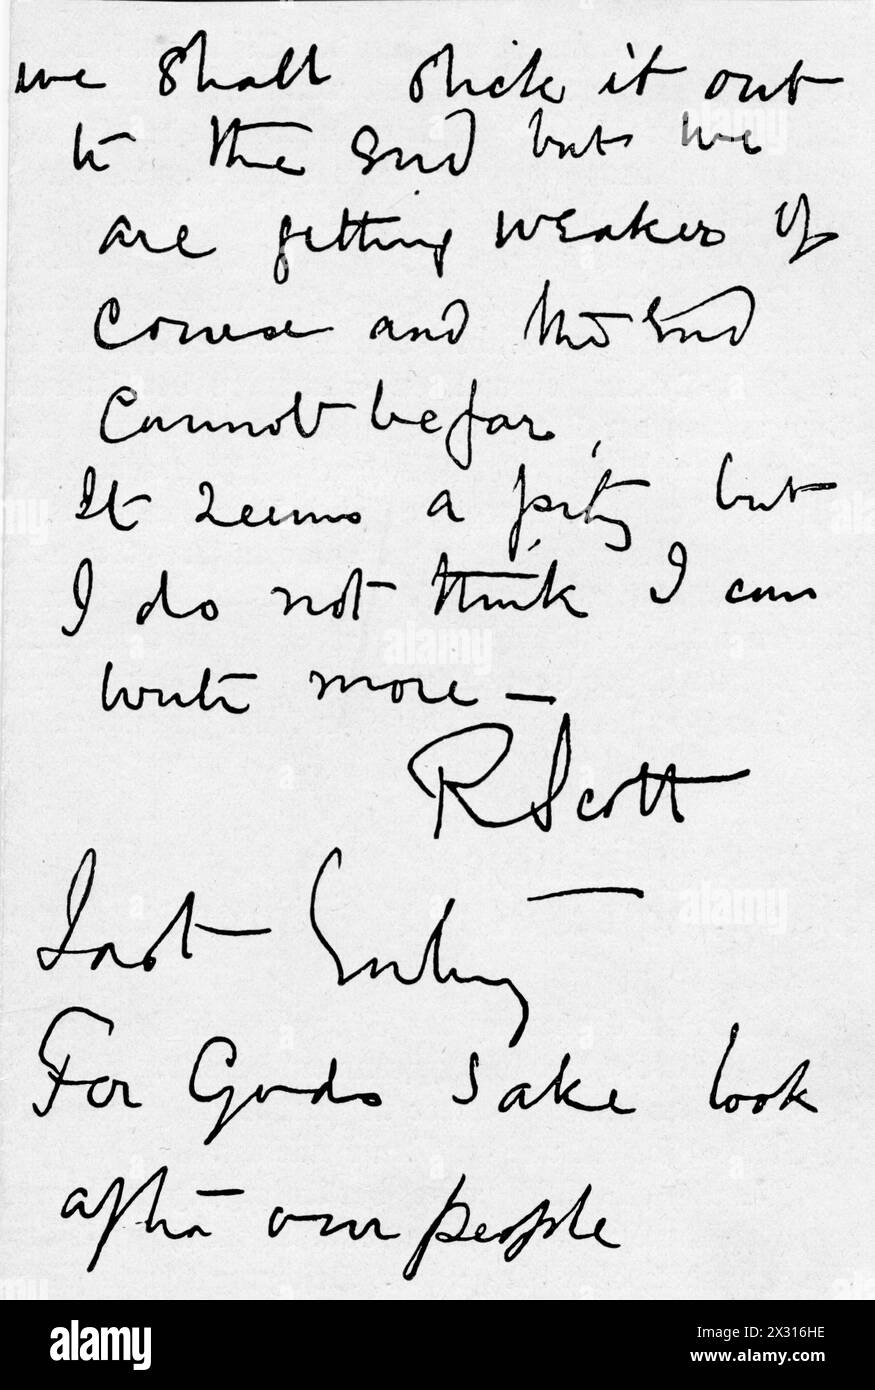 we shall stick it out
to the end but we
are getting weaker of
course and the end
cannot be far,
It seems a pity but
I do not think I can
write more —
R Scott
Last Entry —
For Gods sake look
after our people
alamy
Image ID: 2X316HE
www.alamy.com